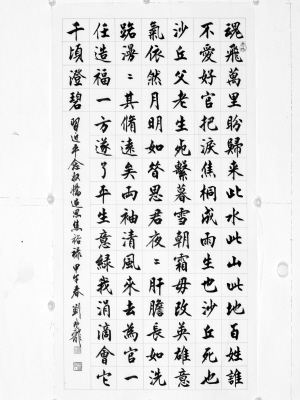 魂飛萬里盼歸來此水此山此地百姓誰
不愛好官把淚焦桐成雨生也沙丘死也
沙丘父老生死繫暮雪朝霜毋改英雄意
氣依然月明如昔思君夜〻肝膽長如洗
路漫〻其脩遠矣兩袖清風來去為官一
任造福一方遂了平生意綠我涓滴會它
千頃澄碧 習近平念奴嬌追思焦裕祿 甲午春 劉